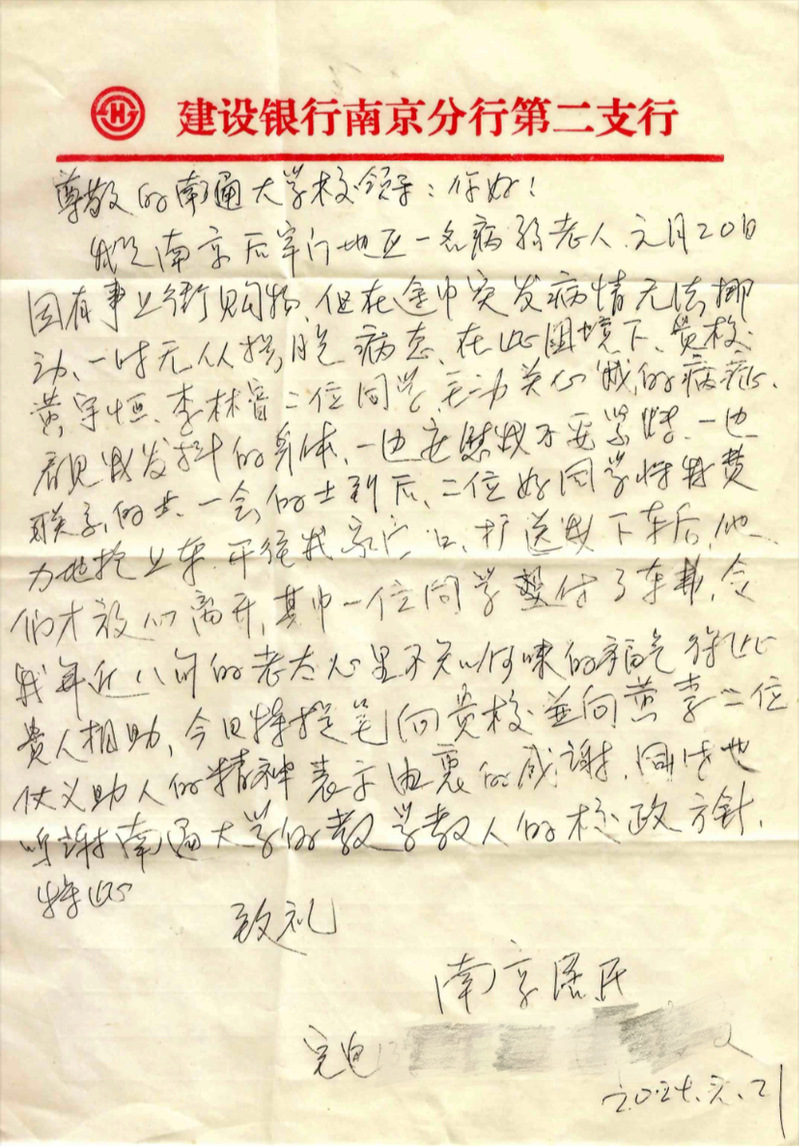 建设银行南京分行第二支行
尊敬的南通大学校领导：你好！
我是南京后宰门地区一名病弱老人，元月20日
因有事上街购物，但在途中突发病情无法挪
动、一时无从摆脱病态、在此困境下、贵校
黄宇恒、李林蓉二位同学、主动关心我的病症、
看见我发抖的身体、一边安慰我不要紧张、一边
联系的士、一会的士到后、二位好同学将我费
力地抱上车、开往我家门口、护送我下车后，他
们才放心离开，其中一位同学垫付了车费，令
我年近八旬的老太心里不知何味的福气得此
贵人相助，今日特提笔向贵校并向黄李二位
仗义助人的精神表示由衷的感谢，同时也
感谢南通大学的教学教人的校政方针，
特此
致礼
南京居民
2024.元.21